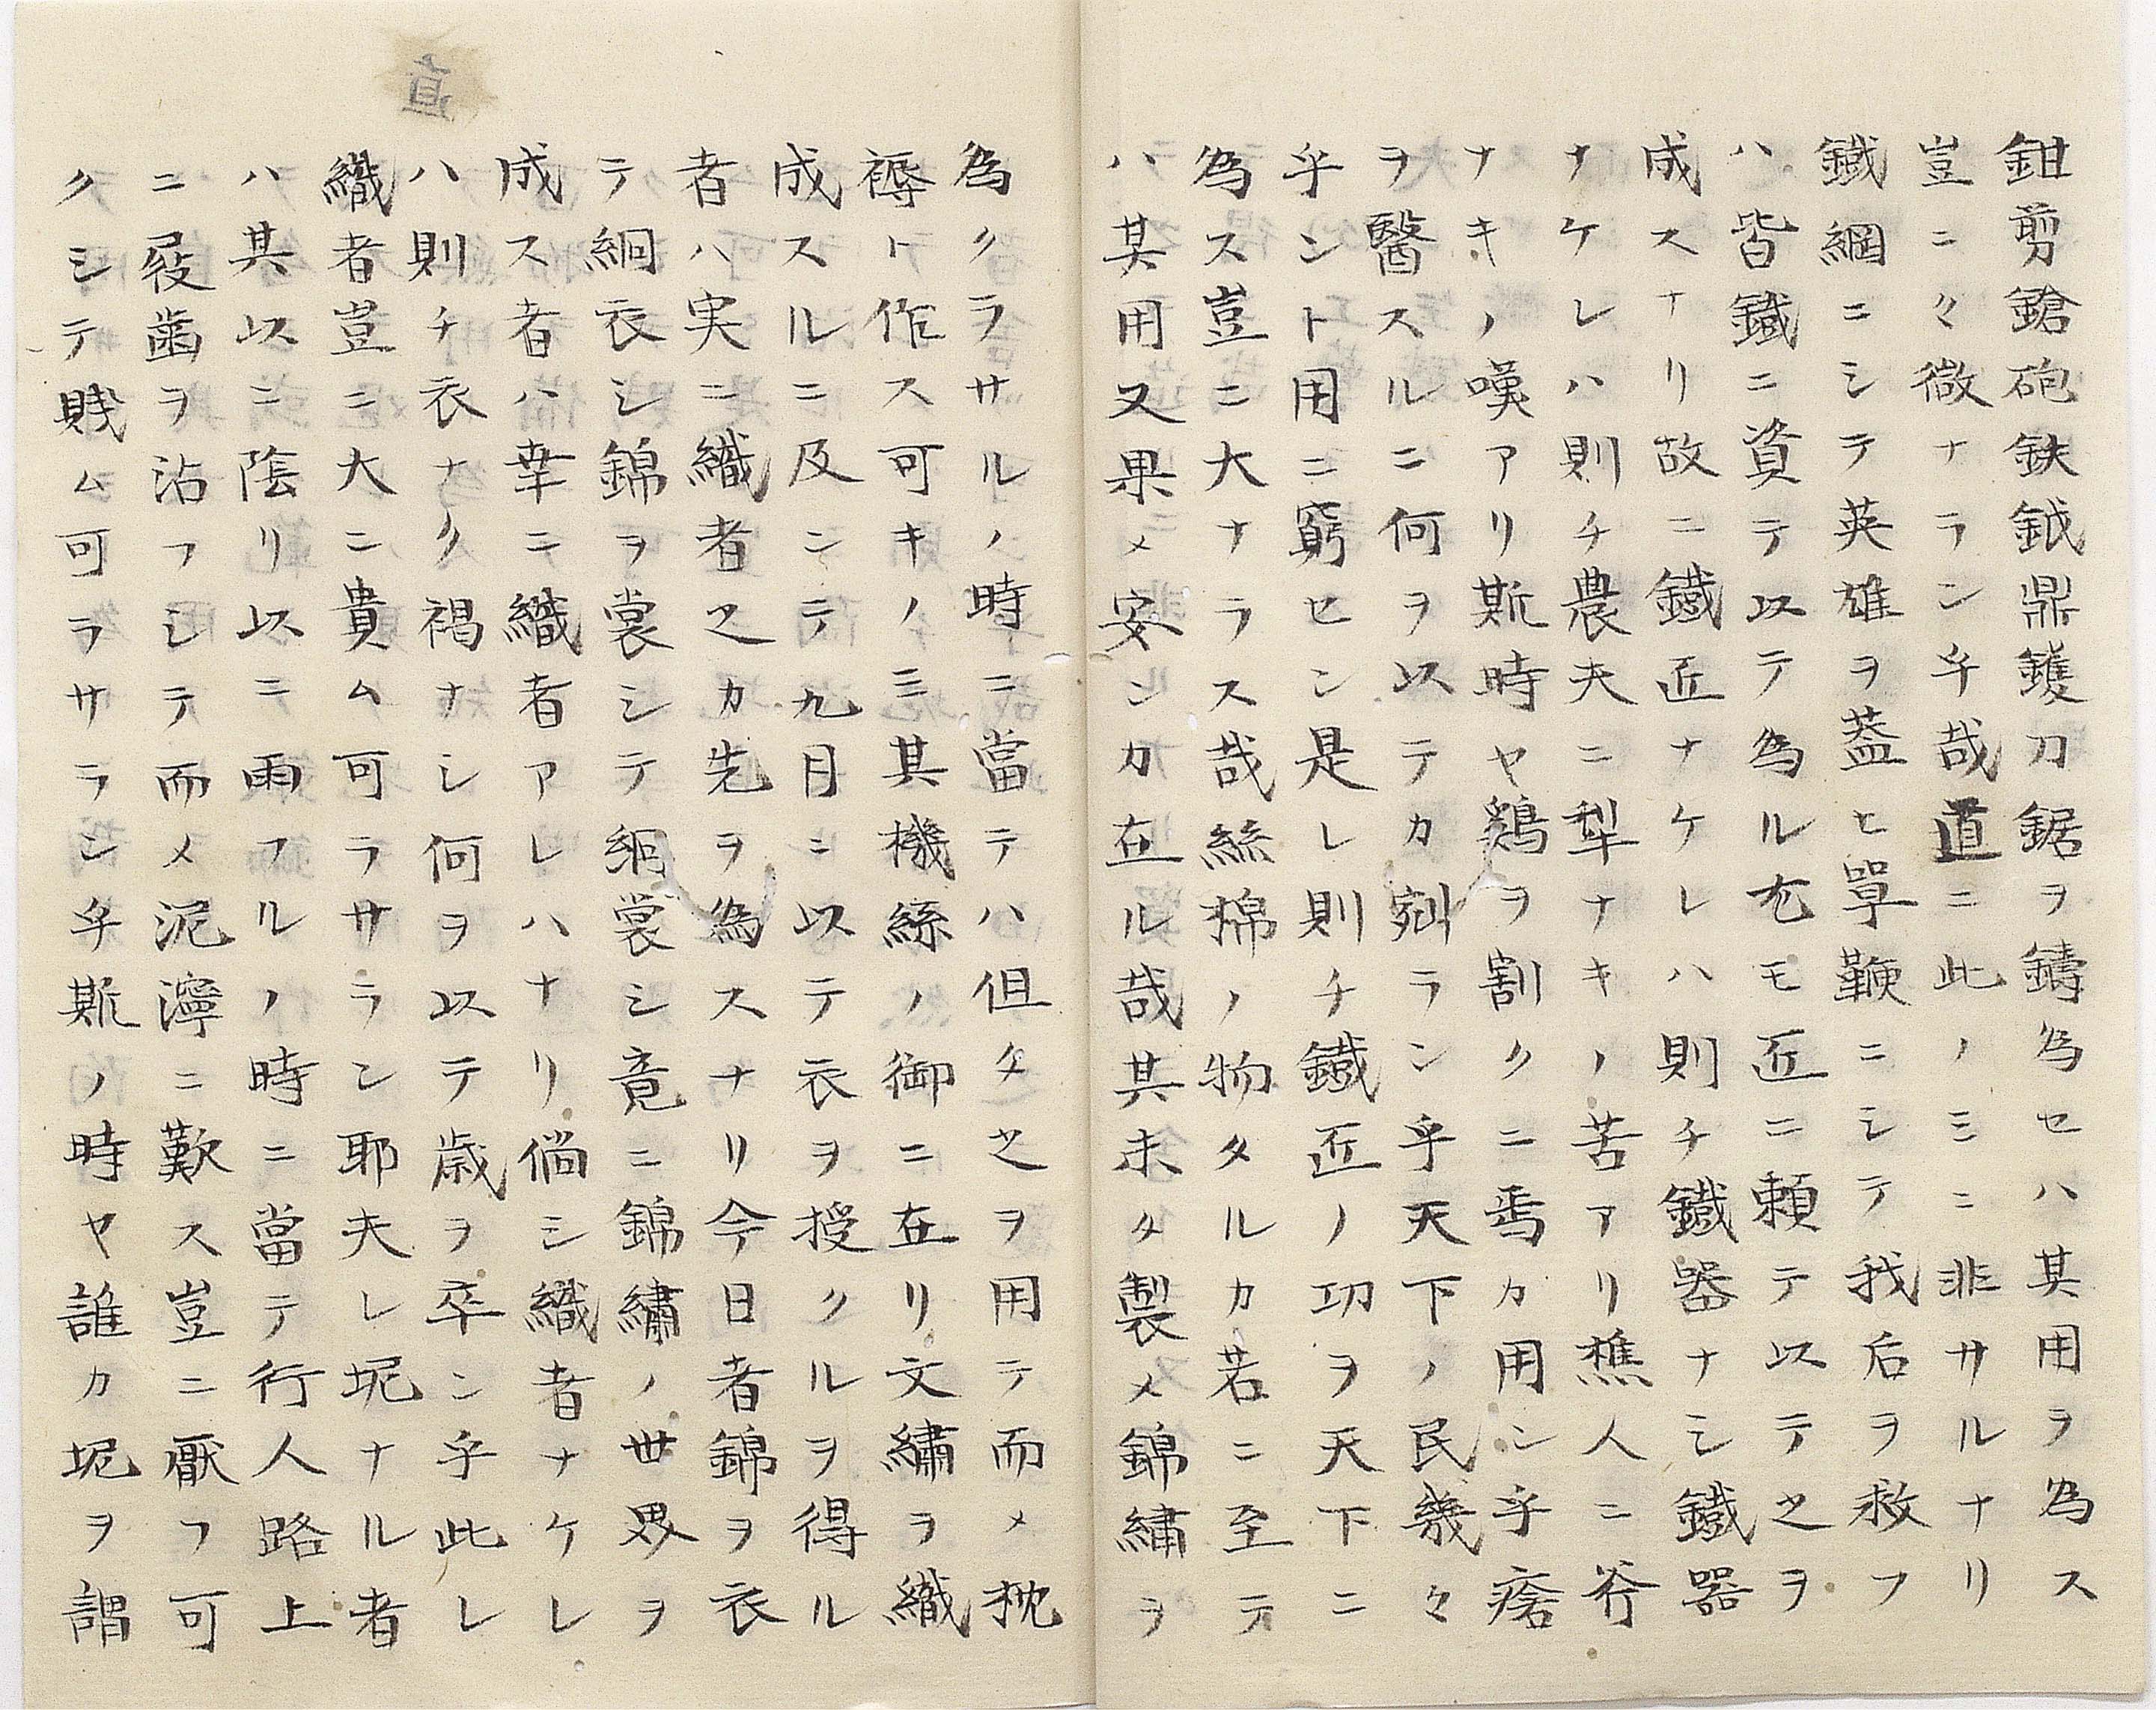 鉗剪鎗砲鈇鉞鼎鑊刀鋸ヲ鑄為セハ其用ヲ為ス
豈ニ々微ナランヤ哉道ニ此ノミニ非サルナリ
鐵綱ニシテ英雄ヲ蓋ヒ單鞭ニシテ我后ヲ救フ
ハ皆鐵ニ資テ以テ為ル尤モ匠ニ頼テ以テ之ヲ
成スナリ故ニ鐵匠ナケレハ則チ鐵器ナシ鐵器
ナケレハ則チ農夫ニ犁ナキノ苦アリ樵人ニ斧
ナキノ嘆アリ斯時ヤ鶏ヲ割クニ焉カ用ン乎瘩
ヲ醫スルニ何ヲ以テカ剜ラン乎天下ノ民幾々
乎ント用ニ窮セン是レ則チ鐵匠ノ功ヲ天下ニ
為ス豈ニ大ナラス哉絲棉ノ物タルカ若ニ至テ
ハ其用又果メ安ンカ在ル哉其未タ製メ錦繡ヲ
為クラサルノ時ニ當テハ但タ之ヲ用テ而メ枕
褥ト作ス可キノミ其機絲ノ御ニ在リ文繡ヲ織
成スルニ及ンテ九月ニ以テ衣ヲ授クルヲ得ル
者ハ実ニ織者之カ先ヲ為スナリ今日者錦ヲ衣
テ絅衣シ錦ヲ裳シテ絅裳シ竟ニ錦繡ノ世界ヲ
成ス者ハ幸ニ織者アレハナリ倘シ織者ナケレ
ハ則チ衣ナク褐ナシ何ヲ以テ歳ヲ卒ン乎此レ
織者豈ニ大ニ貴ム可ラサラン耶夫レ坭ナル者
ハ其以ニ陰リ以ニ雨フルノ時ニ當テ行人路上
ニ屐歯ヲ沾フシテ而メ泥濘ニ歎ス豈ニ厭フ可
クシテ賎ム可ラサランヤ斯ノ時ヤ誰カ坭ヲ謂
直